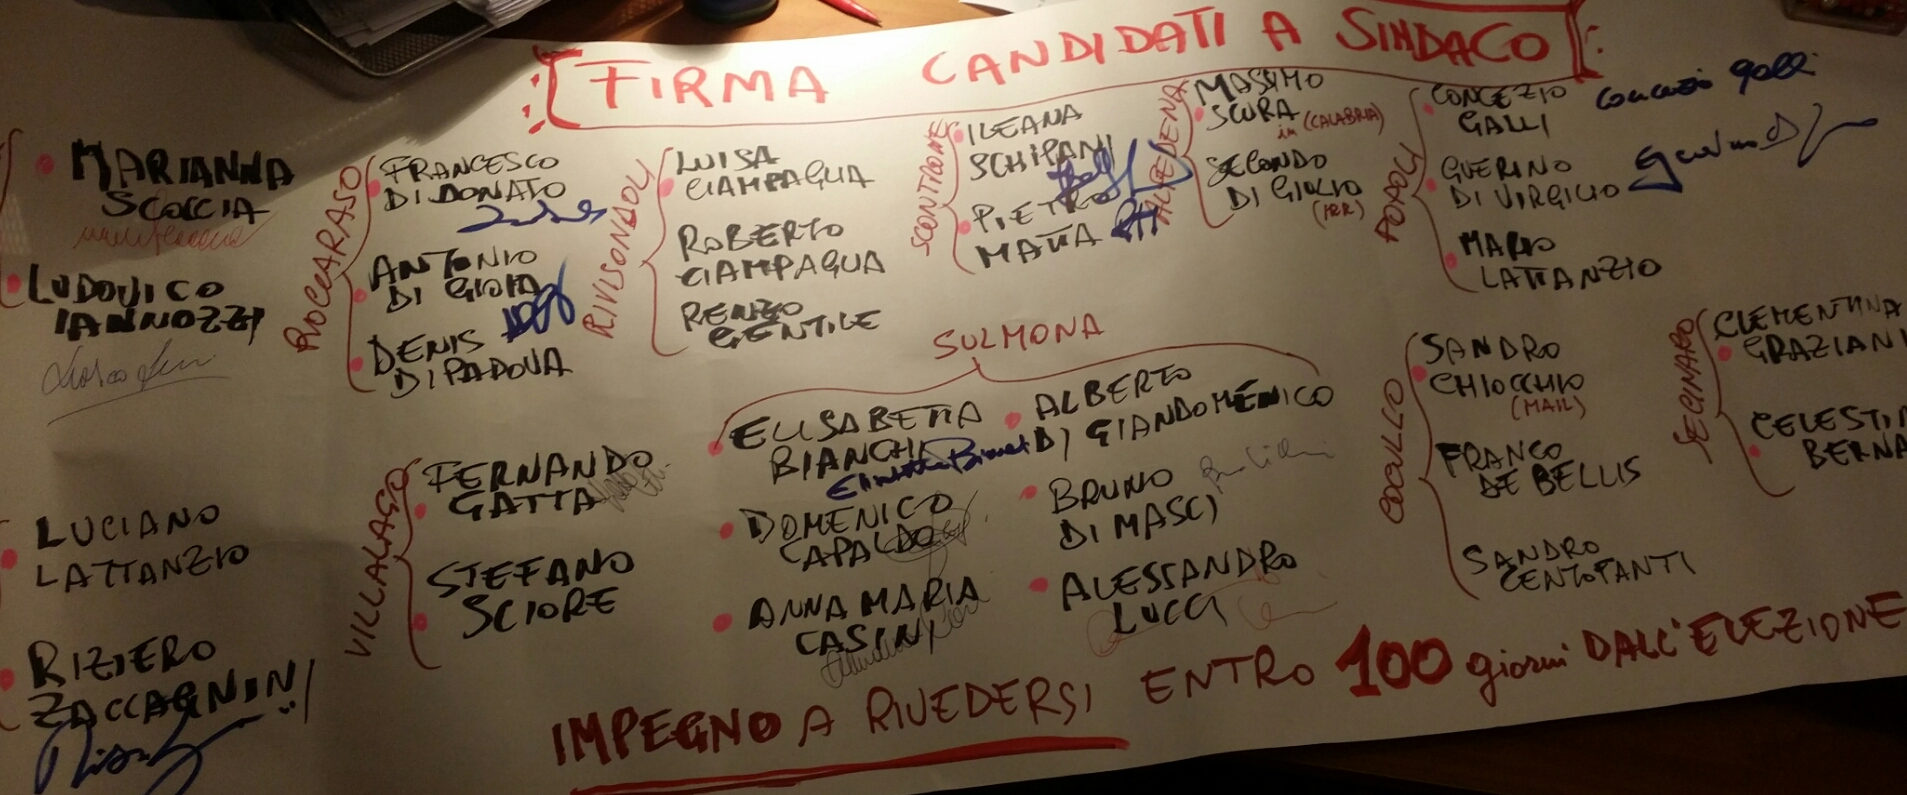 FIRMA CANDIDATI A SINDACO
MARIANNA
SCOCCIA
LUDOVICO
IANNOZZI
LUCIANO
LATTANZIO
RIZIERO
ZACCAGNINI
ROCCARASO
FRANCESCO
DI DONATO
ANTONIO
DI GIOIA
DENIS
DI PADOVA
RIVISONDOLI
LUISA
CIAMPAGUA
ROBERTO
CIAMPAGUA
RENZO
GENTILE
SCONTRONE
ILEANA
SCHIPANI
PIETRO
MATTA
ALFEDENA
MASSIMO
SCURA
in (CALABRIA)
SECONDO
DI GIULIO
POPOLI
CONCEZIO
GALLI
Concezio Galli
GUERINO
DI VIRGILIO
MARIO
LATTANZIO
VILLALAGO
FERNANDO
GATTA
STEFANO
SCIORE
SULMONA
ELISABETTA
BIANCHI
Elisabetta Bianchi
ALBERTO
DI GIANDOMENICO
DOMENICO
CAPALDO
BRUNO
DI MASCI
ANNA MARIA
CASINI
ALESSANDRO
LUCCI
COCULLO
SANDRO
CHIOCCHIO
(MAIL)
FRANCO
DE BELLIS
SANDRO
CENTOFANTI
SECINARO
CLEMENTINA
GRAZIANI
CELESTI
BERNA
IMPEGNO A RIVEDERSI ENTRO 100 giorni DALL'ELEZIONE